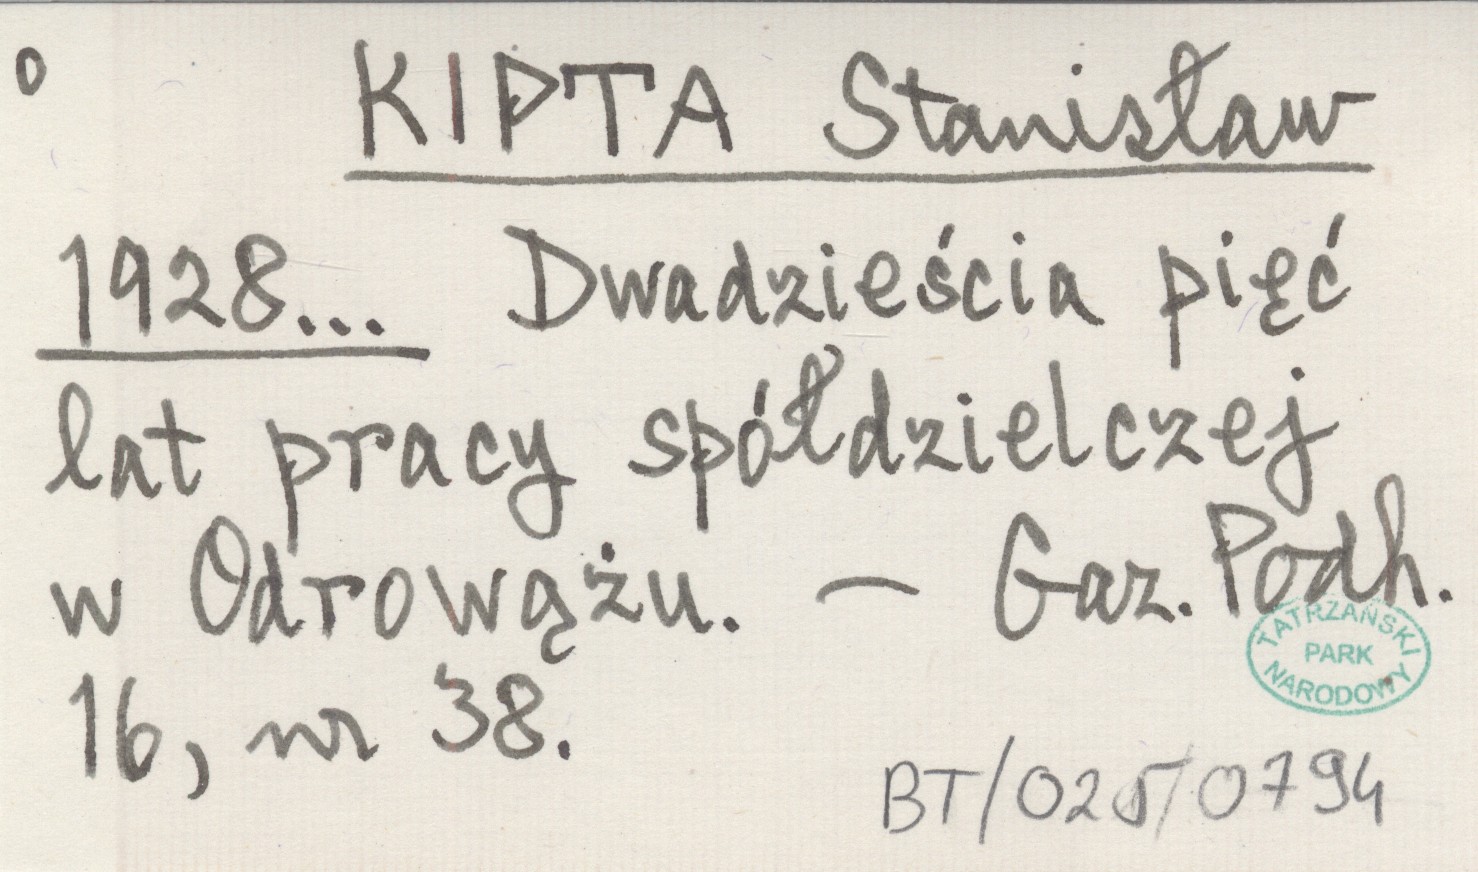 o KIPTA Stanisław
1928... Dwadzieścia pięć
lat pracy spółdzielczej
w Odrowążu. — Gaz. Podh.
16, nr 38.
TATRZAŃSKI
PARK
NARODOWY
BT/025/0794